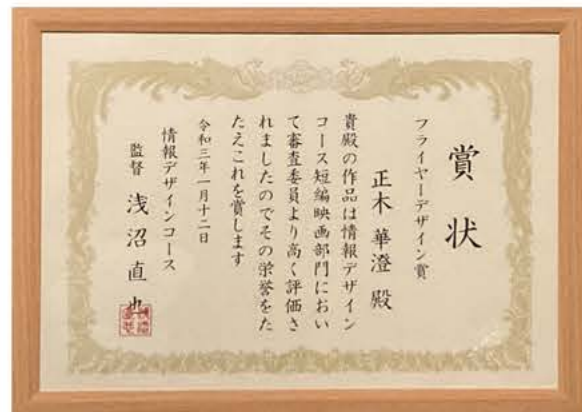 賞状
フライヤーデザイン賞
正木 華澄 殿
貴殿の作品は情報デザイン
コース短編映画部門におい
て審査委員より高く評価さ
れましたのでその栄誉をた
たえこれを賞します
令和三年一月十二日
情報デザインコース
監督 浅沼 直也